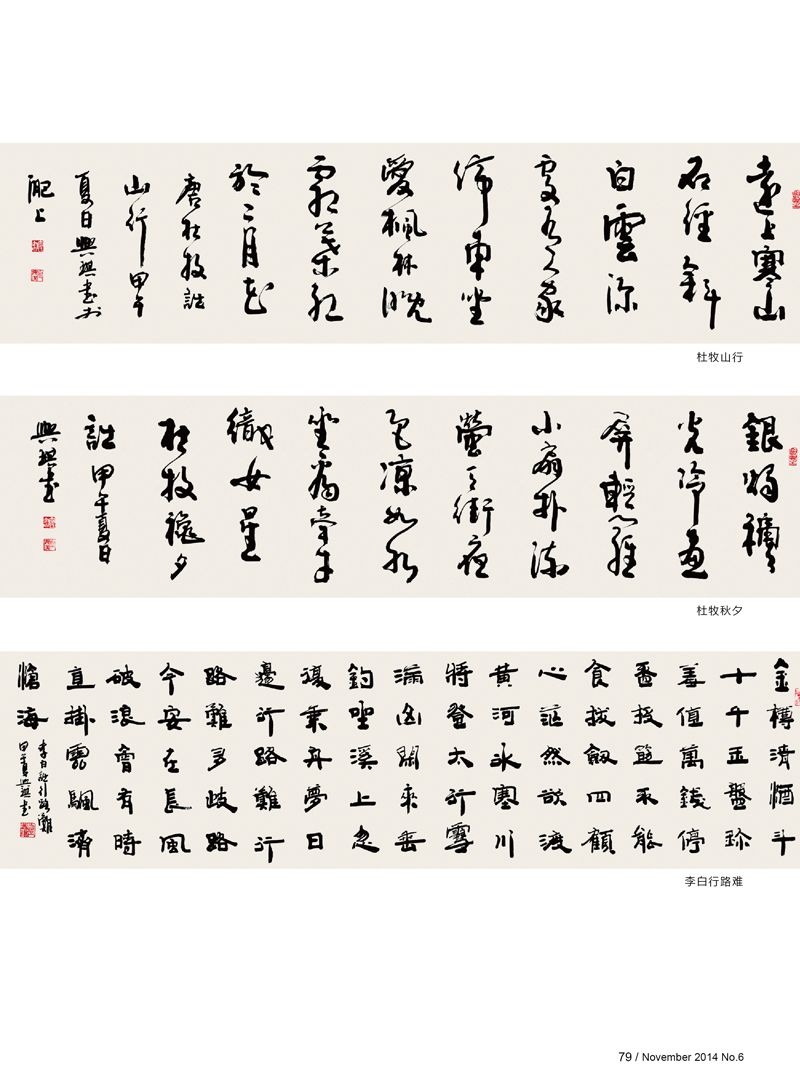 遠上寒山
石徑斜
白雲深
處有人家
停車坐
愛楓林晚
霜葉紅
於二月花
唐杜牧詩
山行甲午
夏日興琪書於
肥上
杜牧山行
銀燭穐
光冷畫
屏輕羅
小扇扑流
螢天街夜
色涼如水
坐看牽牛
織女星
杜牧穐夕
詩甲午夏日
興琪書
杜牧秋夕
金樽清酒斗
十千玉盤珍
羞值萬錢停
盃投箸不能
食拔劍四顧
心茫然欲渡
黃河冰塞川
將登太行雪
滿山閑來垂
釣坐溪上忽
復乘舟夢日
邊行路難行
路難多歧路
今安在長風
破浪會有時
直掛雲颿濟
滄海
李白詩行路難
甲午夏興琪書
李白行路难
79 / November 2014 No.6